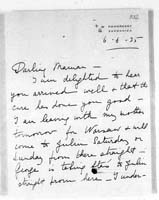 6-6-35
Darling Maman —
I am delighted to hear
you arrived well & that the
cure has done you good —
I am leaving with my mother
tomorrow for Warsaw & will
come to Julin Saturday or
Sunday from there straight —
is taking to Julin
straight from here — I under-